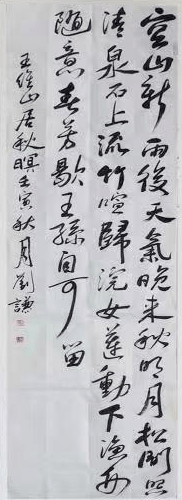 空山新雨後天氣晚來秋明月松間照
清泉石上流竹喧歸浣女蓮動下漁舟
隨意春芳歇王孫自可留
王維山居秋暝壬寅秋月劉謙